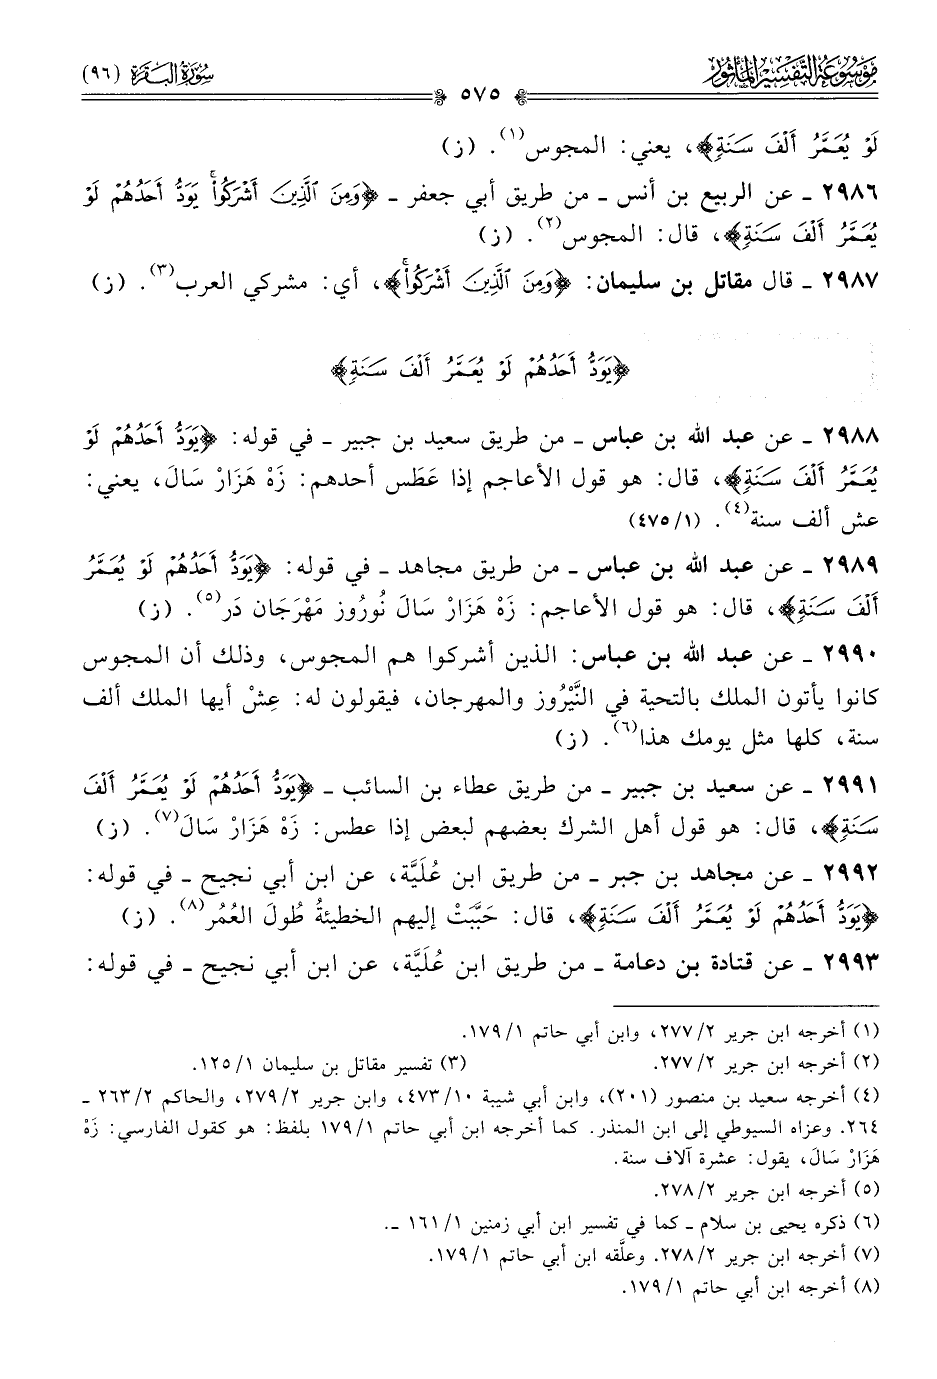 مَوْسُوعَةُ التَّفْسِيرِ المَأْثُورِ
سُورَةُ البَقَرَةِ (٩٦)
٥٧٥
لَوْ يُعَمَّرُ أَلْفَ سَنَةٍ﴾، يعني: المجوس(١). (ز)
٢٩٨٦ ـ عن الربيع بن أنس ـ من طريق أبي جعفر ـ ﴿وَمِنَ ٱلَّذِينَ أَشْرَكُوا۟ۚ يَوَدُّ أَحَدُهُمْ لَوْ
يُعَمَّرُ أَلْفَ سَنَةٍ﴾، قال: المجوس(٢). (ز)
٢٩٨٧ ـ قال مقاتل بن سليمان: ﴿وَمِنَ ٱلَّذِينَ أَشْرَكُوا۟ۚ﴾، أي: مشركي العرب(٣). (ز)
﴿يَوَدُّ أَحَدُهُمْ لَوْ يُعَمَّرُ أَلْفَ سَنَةٍ﴾
٢٩٨٨ ـ عن عبد الله بن عباس ـ من طريق سعيد بن جبير ـ في قوله: ﴿يَوَدُّ أَحَدُهُمْ لَوْ
يُعَمَّرُ أَلْفَ سَنَةٍ﴾، قال: هو قول الأعاجم إذا عَطَس أحدهم: زَهْ هَزَارْ سَالَ، يعني:
عش ألف سنة(٤). (٤٧٥/١)
٢٩٨٩ ـ عن عبد الله بن عباس ـ من طريق مجاهد ـ في قوله: ﴿يَوَدُّ أَحَدُهُمْ لَوْ يُعَمَّرُ
أَلْفَ سَنَةٍ﴾، قال: هو قول الأعاجم: زَهْ هَزَارْ سَالَ نُورُوز مَهْرَجَان دَر(٥). (ز)
٢٩٩٠ ـ عن عبد الله بن عباس: الذين أشركوا هم المجوس، وذلك أن المجوس
كانوا يأتون الملك بالتحية في النَّيْرُوز والمهرجان، فيقولون له: عِشْ أيها الملك ألف
سنة، كلها مثل يومك هذا(٦). (ز)
٢٩٩١ ـ عن سعيد بن جبير ـ من طريق عطاء بن السائب ـ ﴿يَوَدُّ أَحَدُهُمْ لَوْ يُعَمَّرُ أَلْفَ
سَنَةٍ﴾، قال: هو قول أهل الشرك بعضهم لبعض إذا عطس: زَهْ هَزَارْ سَالَ(٧). (ز)
٢٩٩٢ ـ عن مجاهد بن جبر ـ من طريق ابن عُلَيَّة، عن ابن أبي نجيح ـ في قوله:
﴿يَوَدُّ أَحَدُهُمْ لَوْ يُعَمَّرُ أَلْفَ سَنَةٍ﴾، قال: حَبَّبَتْ إليهم الخطيئةُ طُولَ العُمُر(٨). (ز)
٢٩٩٣ ـ عن قتادة بن دعامة ـ من طريق ابن عُلَيَّة، عن ابن أبي نجيح ـ في قوله:
(١) أخرجه ابن جرير ٢/ ٢٧٧، وابن أبي حاتم ١/ ١٧٩.
(٢) أخرجه ابن جرير ٢/ ٢٧٧. (٣) تفسير مقاتل بن سليمان ١/ ١٢٥.
(٤) أخرجه سعيد بن منصور (٢٠١)، وابن أبي شيبة ١٠/ ٤٧٣، وابن جرير ٢/ ٢٧٩، والحاكم ٢/ ٢٦٣ ـ
٢٦٤. وعزاه السيوطي إلى ابن المنذر. كما أخرجه ابن أبي حاتم ١/ ١٧٩ بلفظ: هو كقول الفارسي: زَهْ
هَزَارْ سَالَ، يقول: عشرة آلاف سنة.
(٥) أخرجه ابن جرير ٢/ ٢٧٨.
(٦) ذكره يحيى بن سلام ـ كما في تفسير ابن أبي زمنين ١/ ١٦١ ـ.
(٧) أخرجه ابن جرير ٢/ ٢٧٨. وعلَّقه ابن أبي حاتم ١/ ١٧٩.
(٨) أخرجه ابن أبي حاتم ١/ ١٧٩.